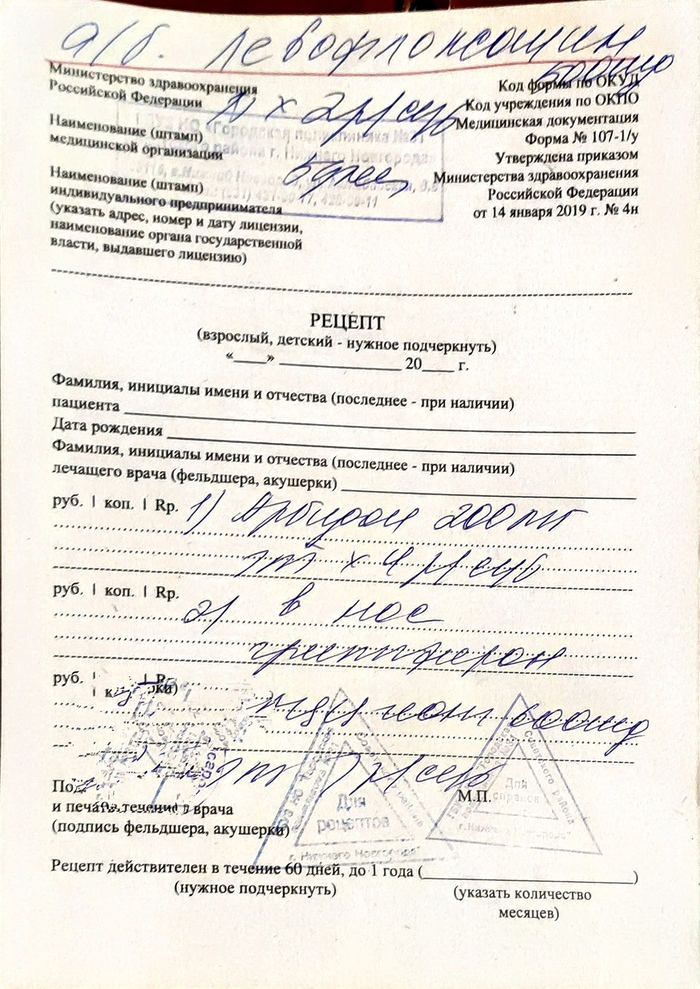 а/б. Левофлоксацин
500мг
Министерство здравоохранения
Российской Федерации
х 2 р/сут
5 дней
Код формы по ОКУД
Код учреждения по ОКПО
Медицинская документация
Форма № 107-1/у
Утверждена приказом
Министерства здравоохранения
Российской Федерации
от 14 января 2019 г. № 4н
Наименование (штамп)
медицинской организации
"Городская поликлиника №
района г. Нижнего Новгорода
Наименование (штамп)
индивидуального предпринимателя
(указать адрес, номер и дату лицензии,
наименование органа государственной
власти, выдавшего лицензию)
РЕЦЕПТ
(взрослый, детский - нужное подчеркнуть)
«____» ______________ 20____ г.
Фамилия, инициалы имени и отчества (последнее - при наличии)
пациента
Дата рождения
Фамилия, инициалы имени и отчества (последнее - при наличии)
лечащего врача (фельдшера, акушерки)
руб. | коп. | Rp. 1) Арбидол 200мг
х 4 р/сут
руб. | коп. | Rp. 2) в нос
гриппферон
руб. |
600мг
р/сут
М.П.
и печать врача
(подпись фельдшера, акушерки)
Для
рецептов
г. Нижнего Новгорода
Для
справок
Советского района
Рецепт действителен в течение 60 дней, до 1 года (____________)
(нужное подчеркнуть)
(указать количество
месяцев)